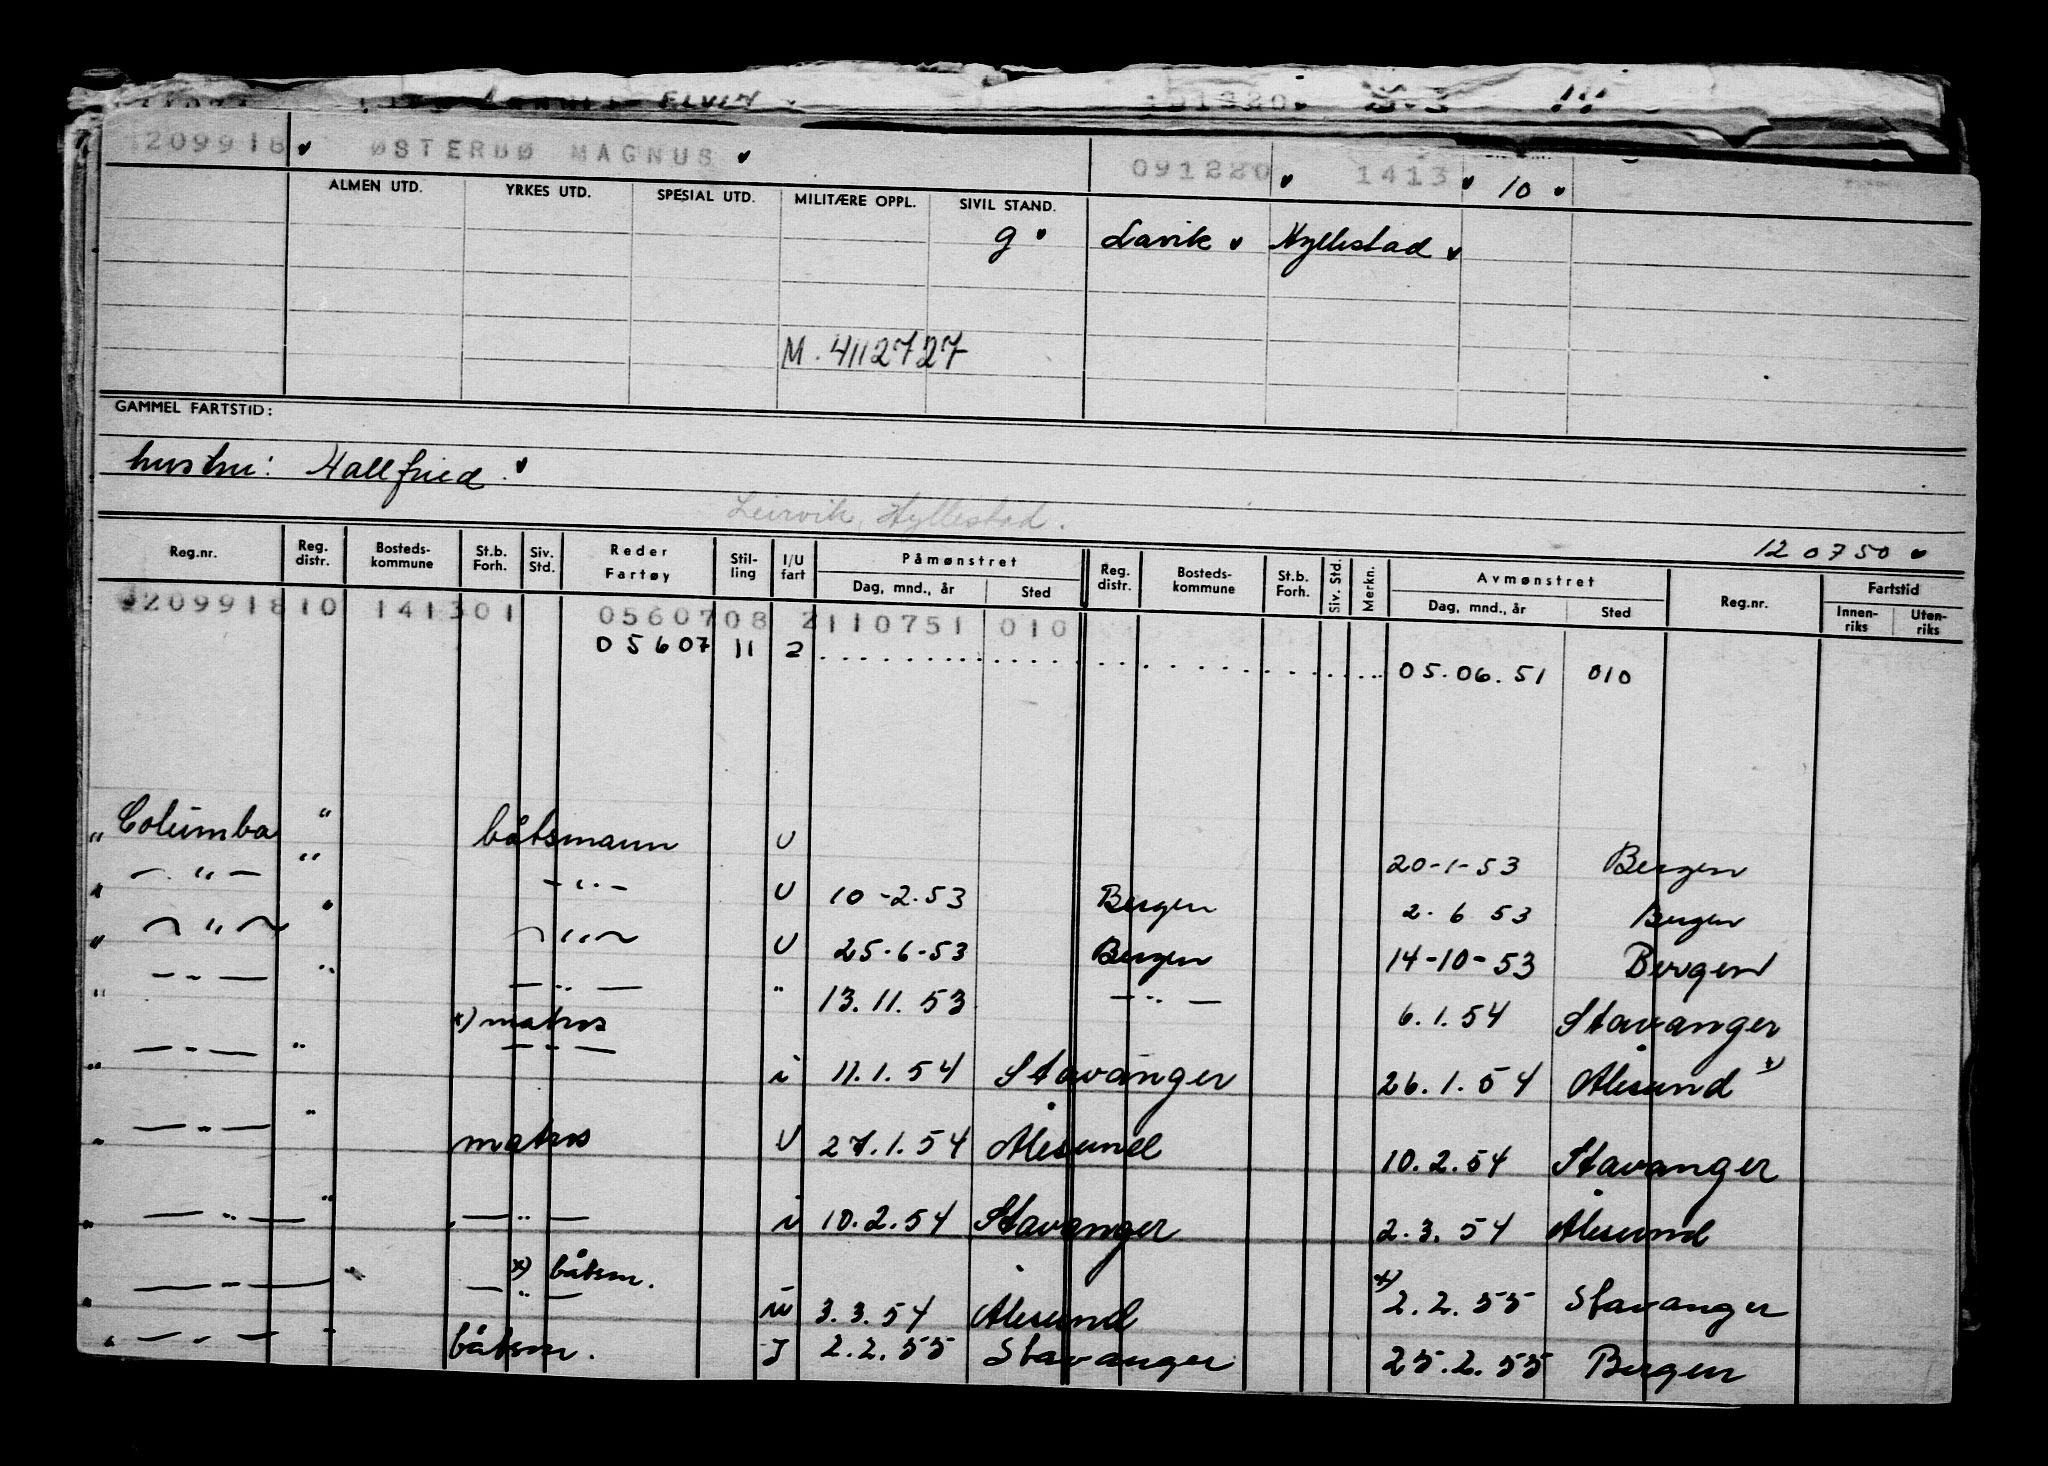 ELVIN
209918 ØSTERBØ MAGNUS 091220 1413 10
ALMEN UTD. YRKES UTD. SPESIAL UTD. MILITÆRE OPPL. SIVIL STAND.
g Lavik Hyllestad
M. 4112727
GAMMEL FARTSTID:
hustru: Hallfried.
Leirvik, Hyllestad.
120750
Reg.nr. Reg. distr. Bosteds-kommune St.b. Forh. Siv. Std. Reder Fartøy Stil-ling I/U fart Påmønstret Dag, mnd., år Sted Reg. distr. Bosteds-kommune St.b. Forh. Siv. Std. Merkn. Avmønstret Dag, mnd., år Sted Reg.nr. Fartstid Innen-riks Uten-riks
209918 10 141301 0560708 2 110751 010
05607 11 2 . . . . . . . . . . 05.06.51 010
" Columba " båtsmann U 20-1-53 Bergen
" — " — " — " — U 10-2.53 Bergen 2.6 53 Bergen
" — " — " — " — U 25-6-53 Bergen 14-10-53 Bergen
" — " — " — " — " 13.11.53 — " — 6.1.54 Stavanger
x) matros
" — " — " — " — i 11.1.54 Stavanger 26.1.54 Ålesund x)
" — " — " matros U 27.1.54 Ålesund 10.2.54 Stavanger
" — " — " — " — i 10.2.54 Stavanger 2.3.54 Ålesund
x) båtsm.
" — — " — 3.3.54 Ålesund x) 2.2.55 Stavanger
" — " — " båtsm. I 2.2.55 Stavanger 25.2.55 Bergen